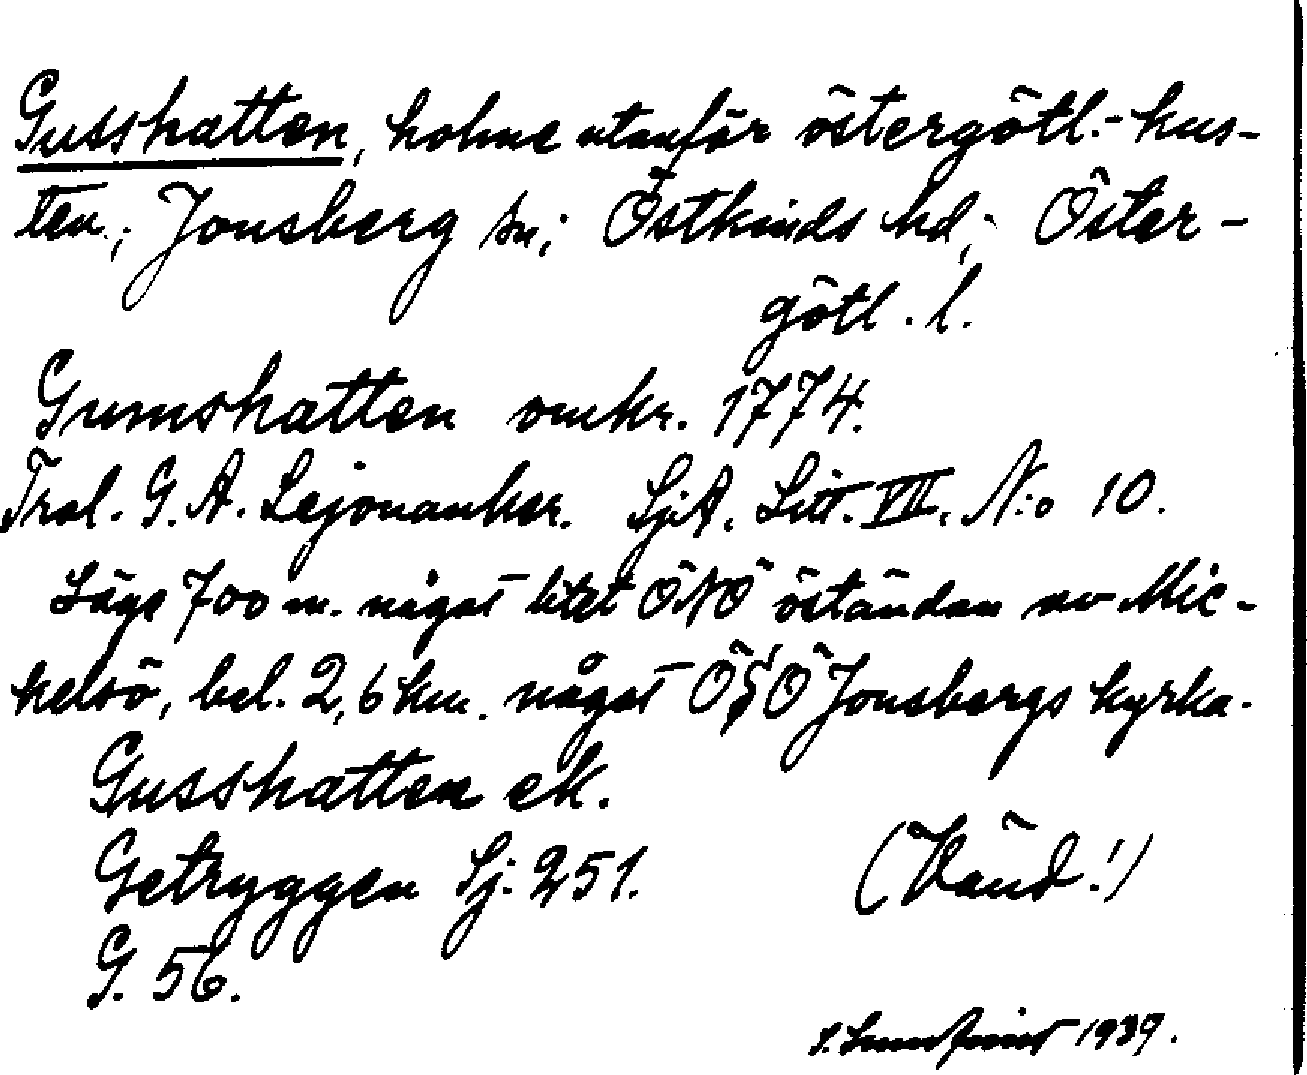 Gusshatten, holme utanför östergötl.- kus-
ten; Jonsberg sn; Östkinds hd; Öster-
götl. l.
Gumshatten omkr. 1774.
Tral. G. A. Lejonanker. SjA. Litt. VII. N:o 10.
Läge 700 m. något litet ÖNÖ öständan av Mic-
kelsö, bel. 2,6 km. något ÖSÖ Jonsbergs kyrka.
Gusshatten ek.
Getryggen Sj. 251.
G. 56.
(Vänd!)
1939.